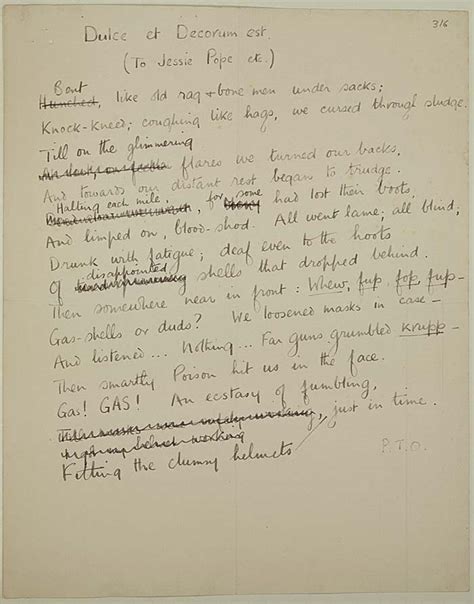 316
Dulce et Decorum est.
(To Jessie Pope etc.)
Bent
Hunched, like old rag & bone men under sacks;
Knock-kneed; coughing like hags, we cursed through sludge.
Till on the glimmering
flares we turned our backs,
And towards our distant rest began to trudge.
Halting each mile,
, for some
had lost their boots,
And limped on, blood-shod. All went lame; all blind;
Drunk with fatigue; deaf even to the hoots
disappointed
Of shells that dropped behind.
Then somewhere near in front: Whew, fup, fop, fup—
Gas-shells or duds? We loosened masks in case—
And listened... Nothing... Far guns grumbled Krupp—
Then smartly Poison hit us in the face.
Gas! GAS! An ecstasy of fumbling,
, just in time.
Fitting the clumsy helmets
P.T.O.